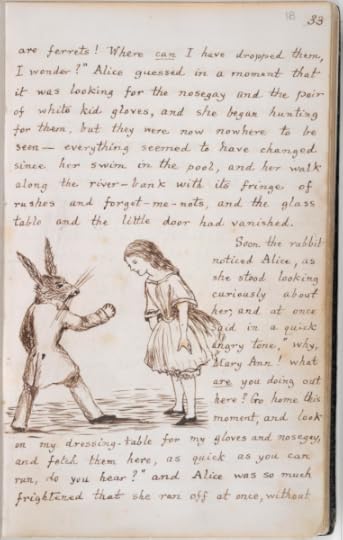 18 33
are ferrets! Where can I have dropped them,
I wonder?" Alice guessed in a moment that
it was looking for the nosegay and the pair
of white kid gloves, and she began hunting
for them, but they were now nowhere to be
seen— everything seemed to have changed
since her swim in the pool, and her walk
along the river-bank with its fringe of
rushes and forget-me-nots, and the glass
table and the little door had vanished.
Soon the rabbit
noticed Alice, as
she stood looking
curiously about
her, and at once
said in a quick
angry tone, "why,
Mary Ann! what
are you doing out
here? Go home this
moment, and look
on my dressing-table for my gloves and nosegay,
and fetch them here, as quick as you can
run, do you hear?" and Alice was so much
frightened that she ran off at once, without